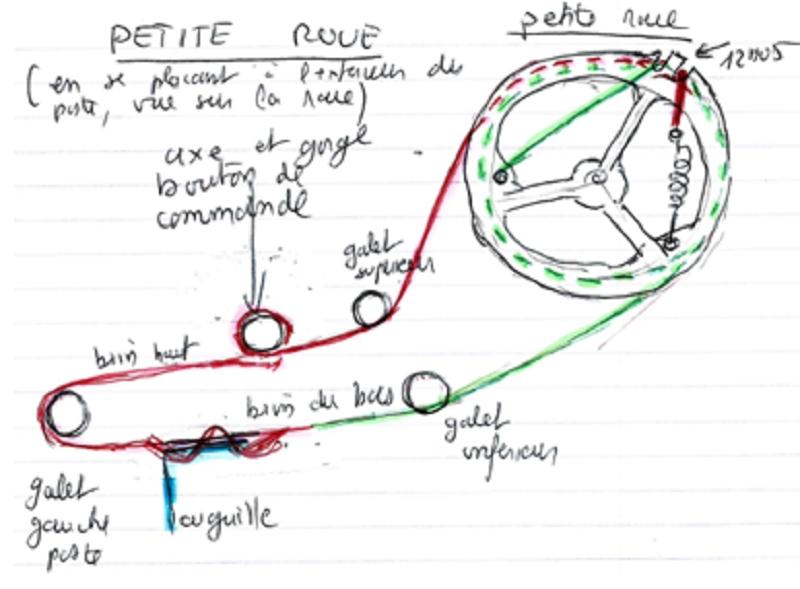 PETITE ROUE
(en se plaçant à l'intérieur du
poste, vue sur la roue)
petite roue
axe et gorge
bouton de
commande
galet
supérieur
brin haut
brin du bas
galet
inférieur
galet
gauche
poste
aiguille